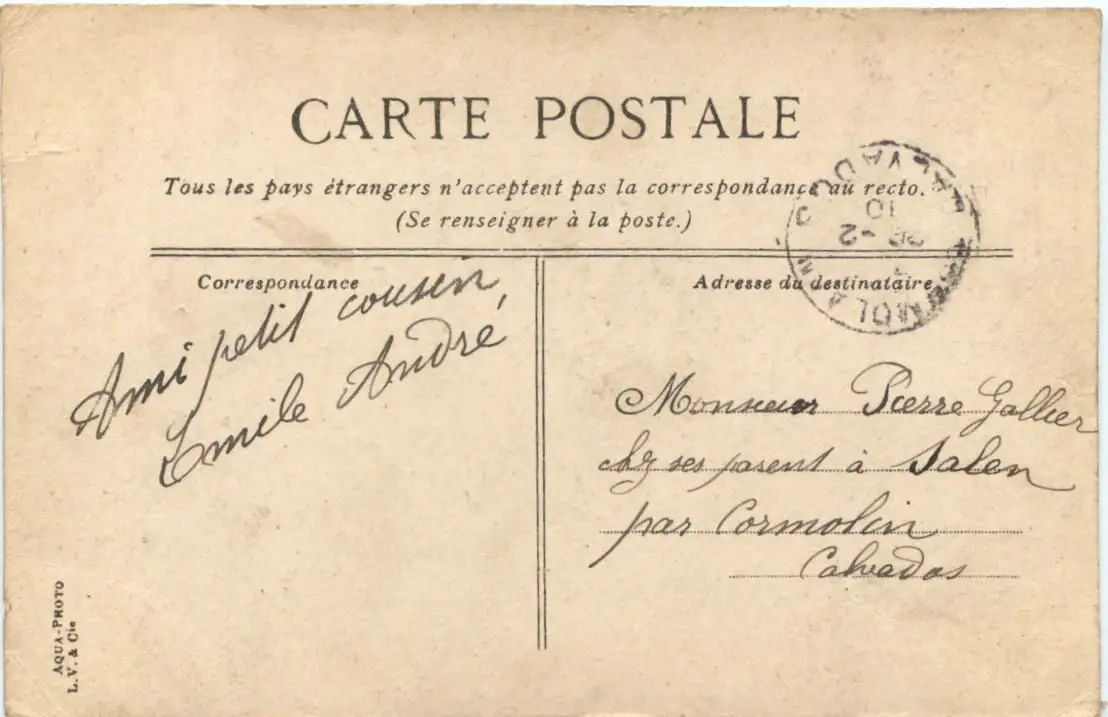 CARTE POSTALE
Tous les pays étrangers n'acceptent pas la correspondance au recto.
(Se renseigner à la poste.)
Correspondance
Ami petit cousin
Emile André
Adresse du destinataire
Monsieur Pierre Gallier
chz ses parent à Salen
par Cormolin
Calvados
CALVADOS
10
26-2
AQUA-PHOTO
L.V. & Cie